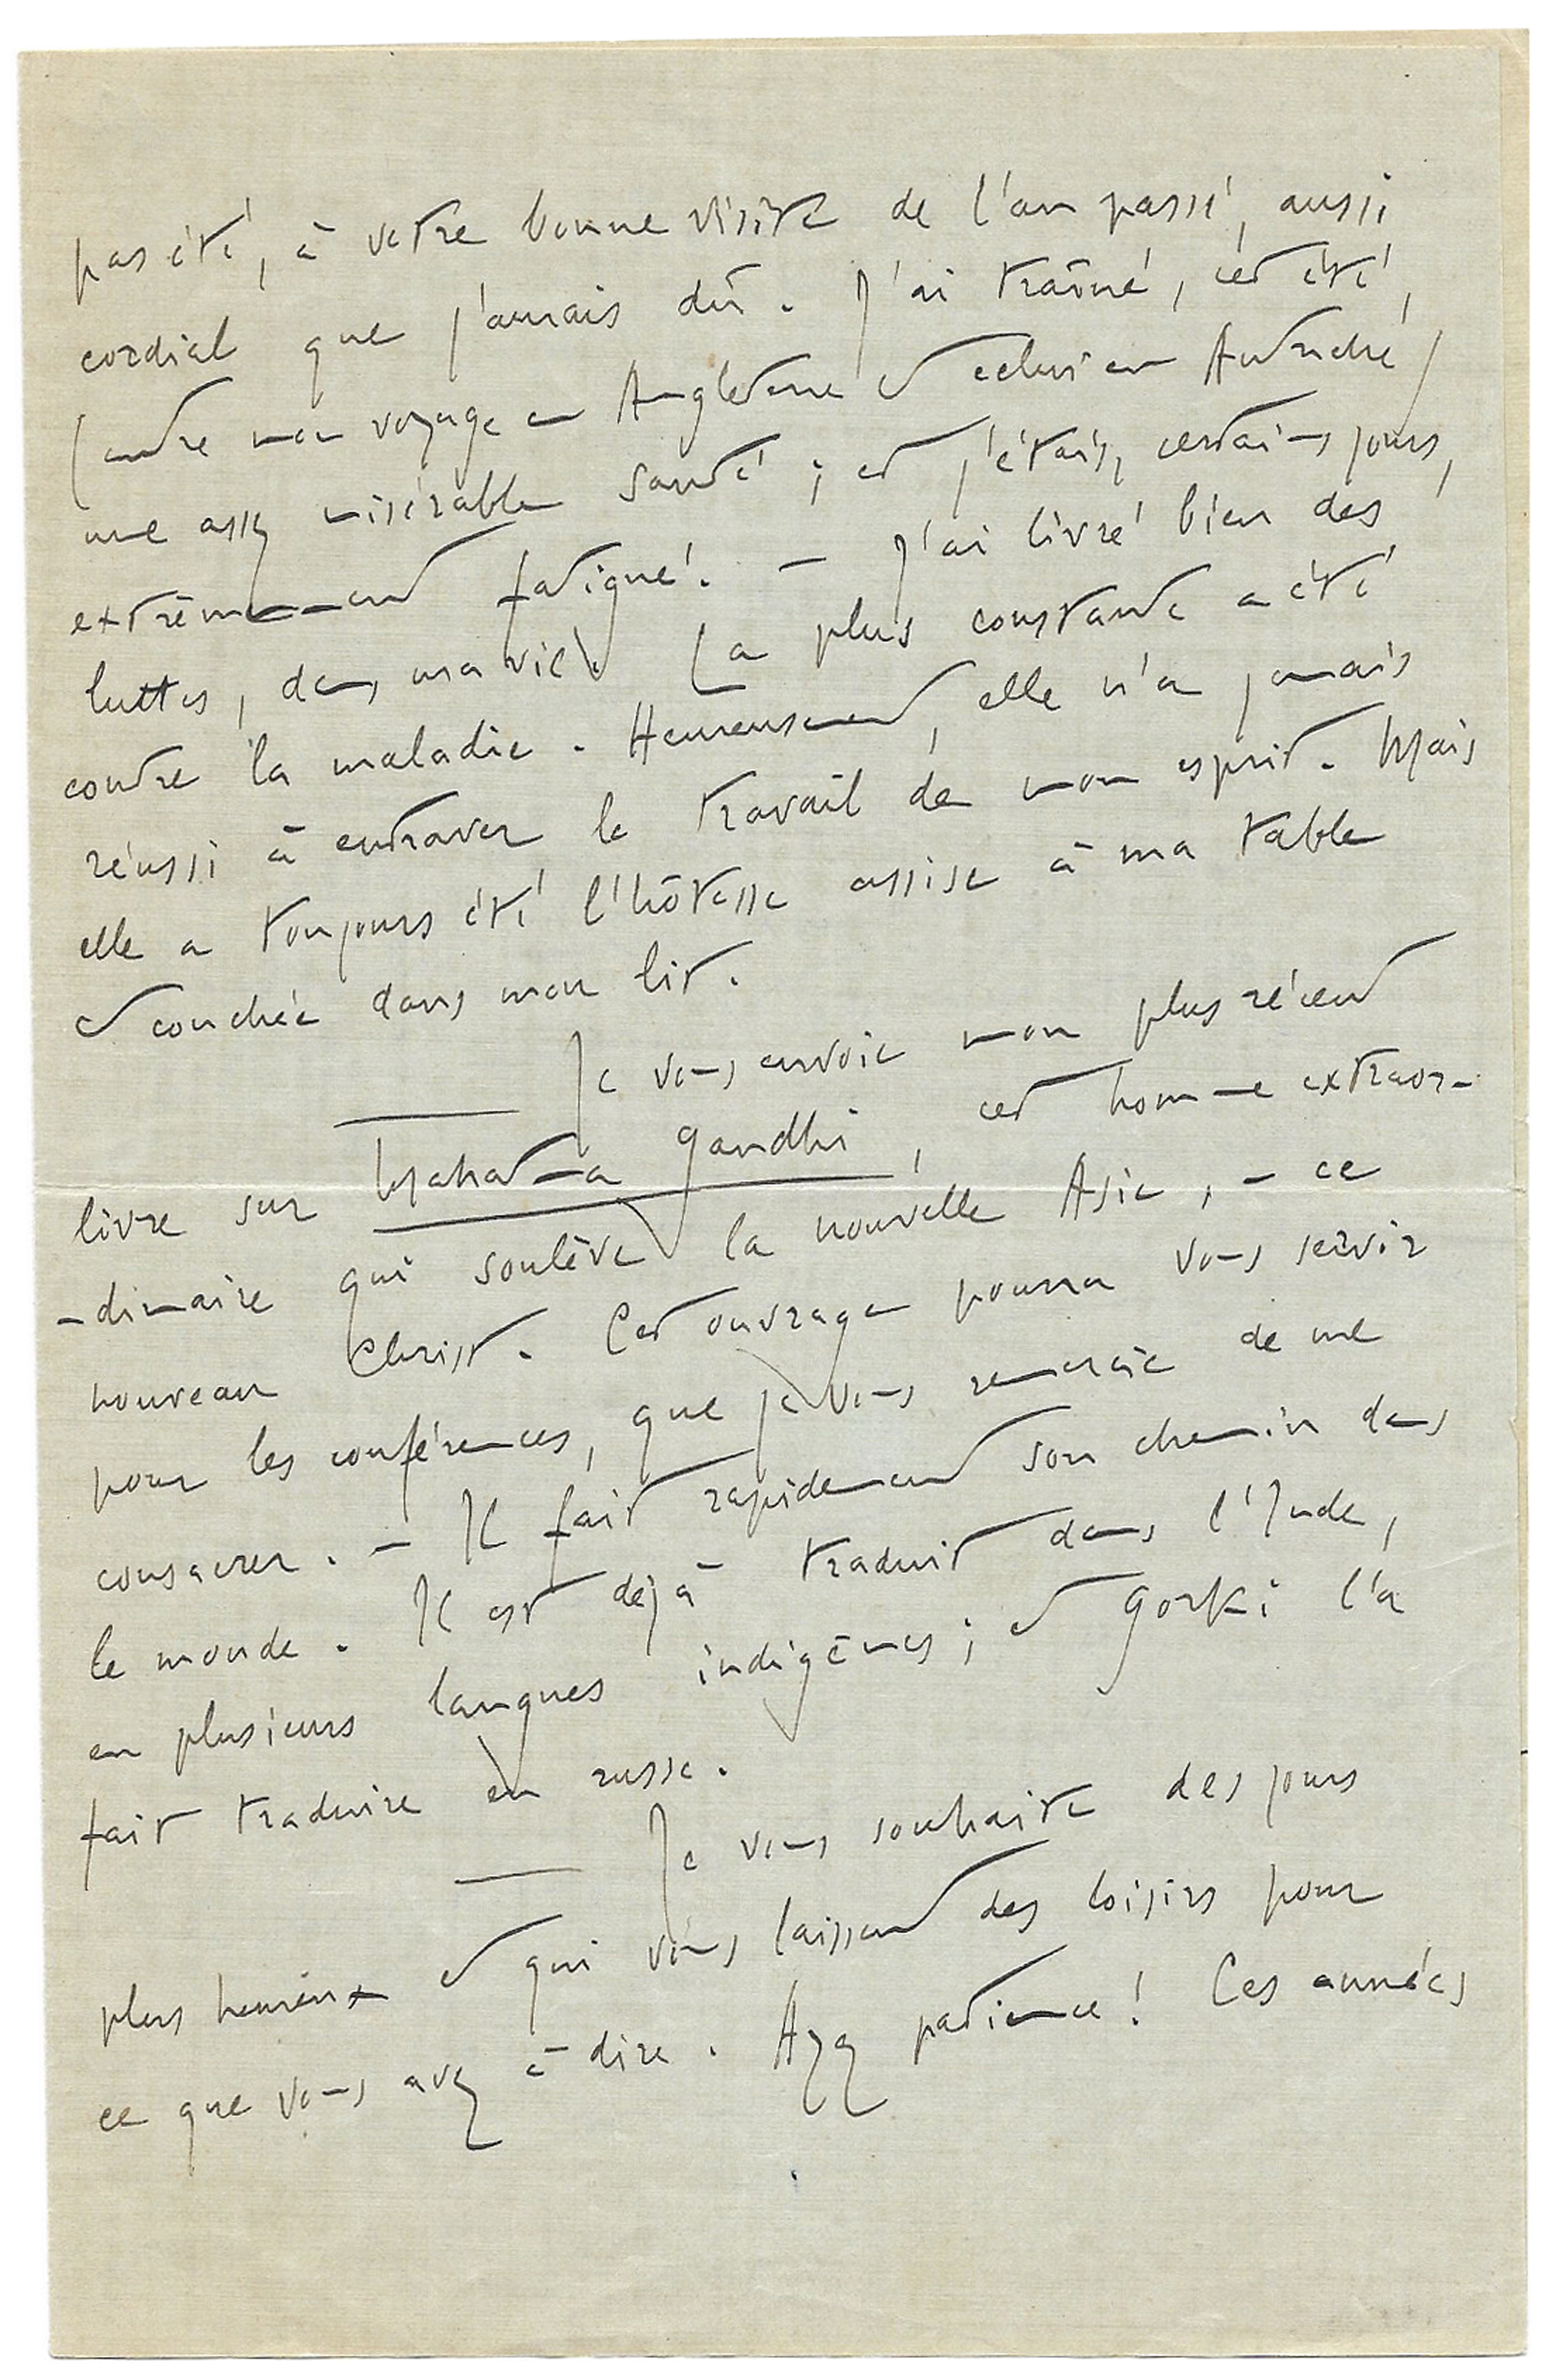 pas été, à votre bonne visite de l'an passé, aussi
cordial que j'aurais dû. J'ai traîné, cet été,
(entre mon voyage en Angleterre et celui en Autriche)
une assez misérable santé ; et j'étais, certains jours,
extrêmement fatigué. — J'ai livré bien des
luttes, dans ma vie. La plus constante a été
contre la maladie. Heureusement, elle n'a jamais
réussi à entraver le travail de mon esprit. Mais
elle a toujours été l'hôtesse assise à ma table
et couchée dans mon lit.
— Je vous envoie mon plus récent
livre sur Mahatma Gandhi, cet homme extraor-
-dinaire qui soulève la nouvelle Asie, – ce
nouveau Christ. Cet ouvrage pourra vous servir
pour les conférences, que je vous remercie de me
consacrer. – Il fait rapidement son chemin dans
le monde. Il est déjà traduit dans l'Inde,
en plusieurs langues indigènes ; et Gorki l'a
fait traduire en russe.
— Je vous souhaite des jours
plus heureux et qui vous laissent des loisirs pour
ce que vous avez à dire. Ayez patience ! Ces années